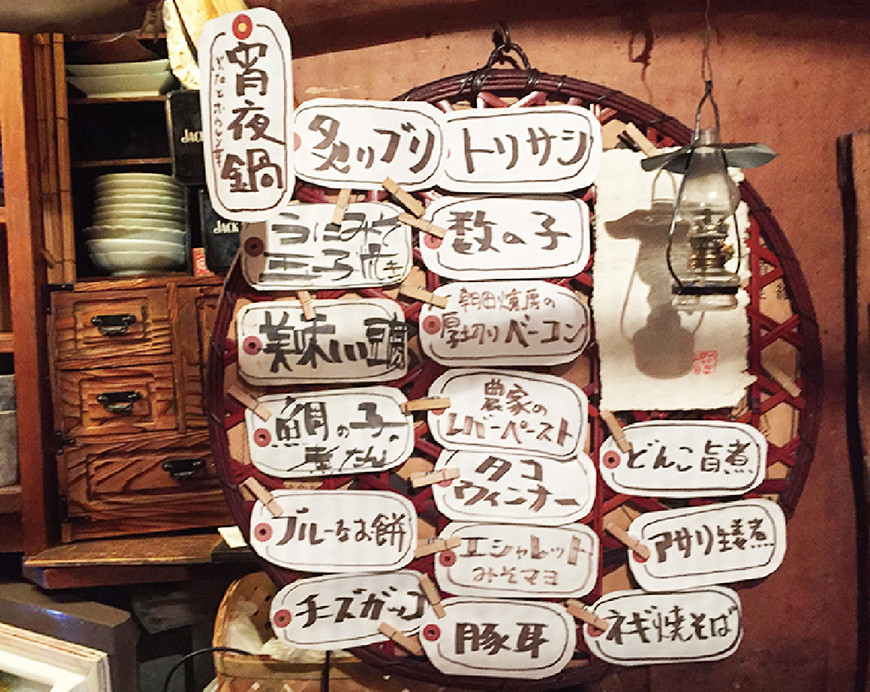 宵夜鍋
炙りブリ
トリサシ
うにみそ
玉子
数の子
朝田燻房の
厚切りベーコン
美味い豆腐
鯛の子の
農家の
レバーペースト
タコ
ウィンナー
どんこ旨煮
ブルーなお餅
エシャレット
みそマヨ
アサリ生姜煮
チーズガッコ
豚耳
ネギ焼そば
JACK
JACK